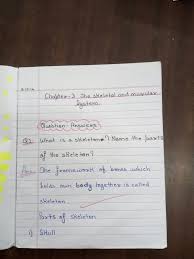 Chapter-3 The skeletal and muscular
System.
Question Answers
Q1 What is a skeleton? Name the parts
of the skeleton?
Ans The framework of bones which
holds our body together is called
skeleton.
Parts of skeleton
i) Skull